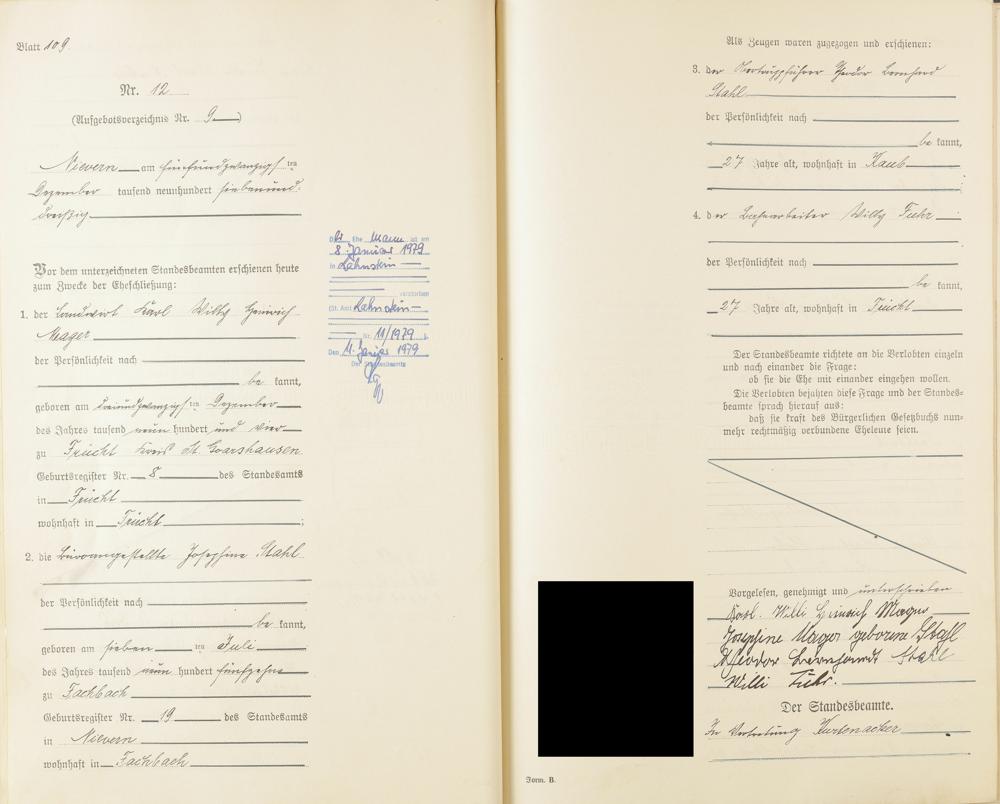 Blatt 109
Nr. 12
(Aufgebotsverzeichnis Nr. 9)
Nievern am fünfundzwanzigsten
Dezember tausend neunhundert siebenund-
dreißig
Vor dem unterzeichneten Standesbeamten erschienen heute
zum Zwecke der Eheschließung:
1. der Landwirt Karl Willy Heinrich
Mager
der Persönlichkeit nach
be kannt,
geboren am dreiundzwanzigsten Dezember
des Jahres tausend neun hundert und vier
zu Frücht Kreis St. Goarshausen
Geburtsregister Nr. 8 des Standesamts
in Frücht
wohnhaft in Frücht ;
2. die Büroangestellte Josephine Stahl
der Persönlichkeit nach
be kannt,
geboren am sieben ten Juli
des Jahres tausend neun hundert fünfzehn
zu Fachbach
Geburtsregister Nr. 19 des Standesamts
in Nievern
wohnhaft in Fachbach
Der Ehe Mann ist am
8. Januar 1979
in Lahnstein
verstorben
(St. Amt Lahnstein
Nr. 11/1979 ).
Den 11. Januar 1979
Der Standesbeamte
Als Zeugen waren zugezogen und erschienen:
3. der Obertruppführer Theodor Bernhard
Stahl
der Persönlichkeit nach
be kannt,
27 Jahre alt, wohnhaft in Kaub
;
4. der Willy Fuhr
der Persönlichkeit nach
be kannt,
27 Jahre alt, wohnhaft in Frücht
Der Standesbeamte richtete an die Verlobten einzeln
und nach einander die Frage:
ob sie die Ehe mit einander eingehen wollen.
Die Verlobten bejahten diese Frage und der Standes-
beamte sprach hierauf aus:
daß sie kraft des Bürgerlichen Gesetzbuchs nun-
mehr rechtmäßig verbundene Eheleute seien.
Vorgelesen, genehmigt und unterschrieben
Karl Willi Heinrich Mager
Josephine Mager geborene Stahl
Theodor Bernhardt Stahl
Willi Fuhr.
Der Standesbeamte.
In Vertretung Kurtenacker
Form. B.